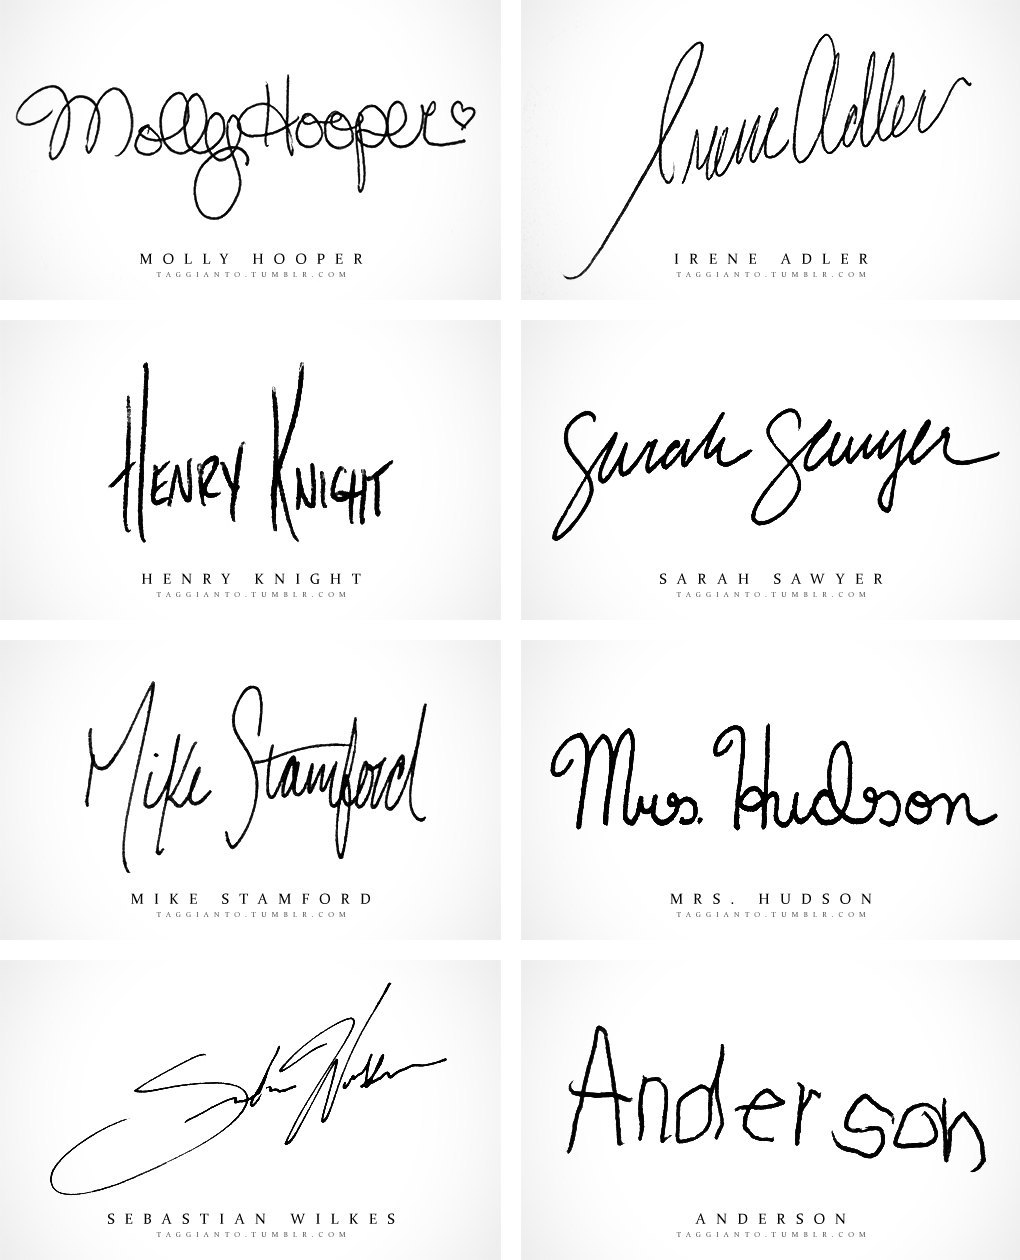 Molly Hooper♡
MOLLY HOOPER
TAGGIANTO.TUMBLR.COM
Irene Adler
IRENE ADLER
TAGGIANTO.TUMBLR.COM
HENRY KNIGHT
HENRY KNIGHT
TAGGIANTO.TUMBLR.COM
Sarah Sawyer
SARAH SAWYER
TAGGIANTO.TUMBLR.COM
Mike Stamford
MIKE STAMFORD
TAGGIANTO.TUMBLR.COM
Mrs. Hudson
MRS. HUDSON
TAGGIANTO.TUMBLR.COM
SEBASTIAN WILKES
TAGGIANTO.TUMBLR.COM
Anderson
ANDERSON
TAGGIANTO.TUMBLR.COM